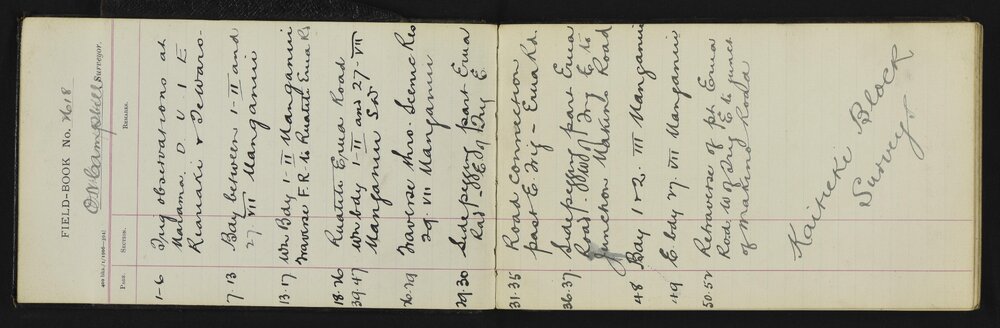 FIELD-BOOK No. 2618
O.N. Campbell Surveyor.
400 bks./1/1906—304]
PAGE. SECTION. REMARKS.
1-6 Trig observations at
Matama. D. U I E
Reariaki & Tewaro-
7-13 Bdy between 1-II and
27. VIII Manganui
13-17 Wn Bdy 1-II Manganui
Traverse F.R. to Ruatiti Erua Rd
18-26 Ruatiti Erua Road
39-47 Wn bdy 1-II and 27-VII
Manganui S.D
20-29 Traverse thro. Scenic Res
29. VII Manganui
29-30 Sidepegging part Erua
Rd - E of Trig E.
31-35 Road connection
past E Trig - Erua Rd.
36-37 Sidepegging part Erua
Road. W of Trig E to
junction Makino Road
48 Bdy 1 & 2. III Manganui
49 E. bdy 27. VII Manganui
50-52 Retraverse of pt Erua
Road. W of Trig E to junct
of Makino Road
Kaitieke Block
Survey.